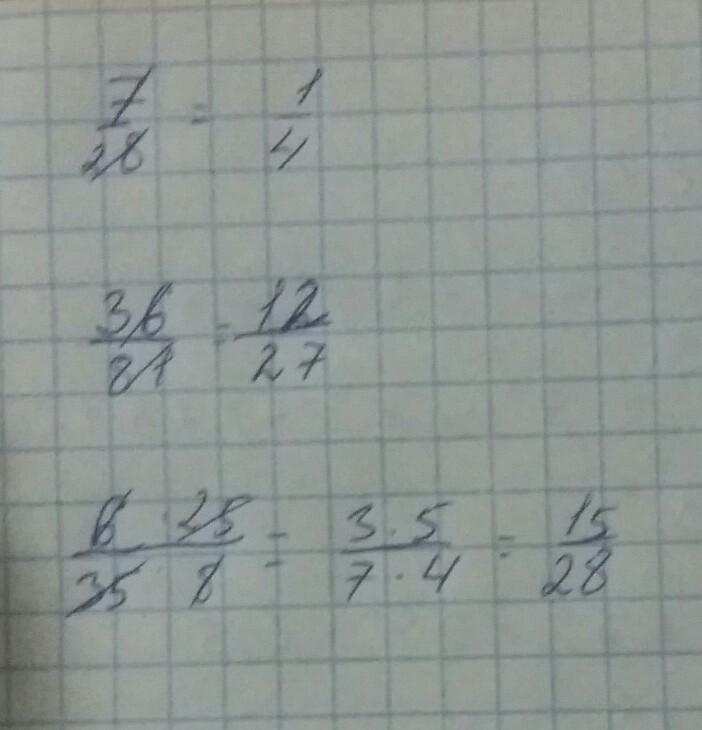 7/28 = 1/4
36/81 = 12/27
6 · 25 / 35 · 8 = 3 · 5 / 7 · 4 = 15/28